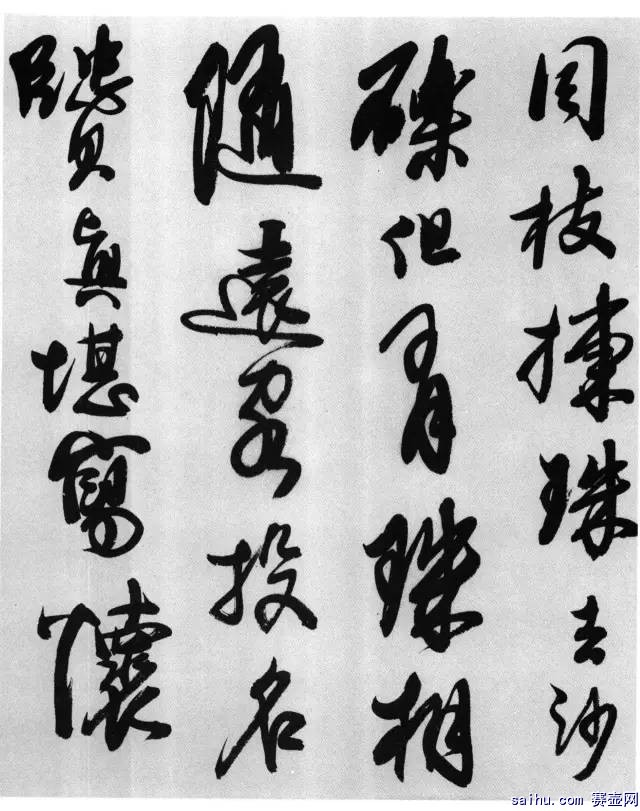 同枝揀珠去沙
礫但有珠相
隨遠客投名
贒真堪寫懷
saihu.com 赛壶网